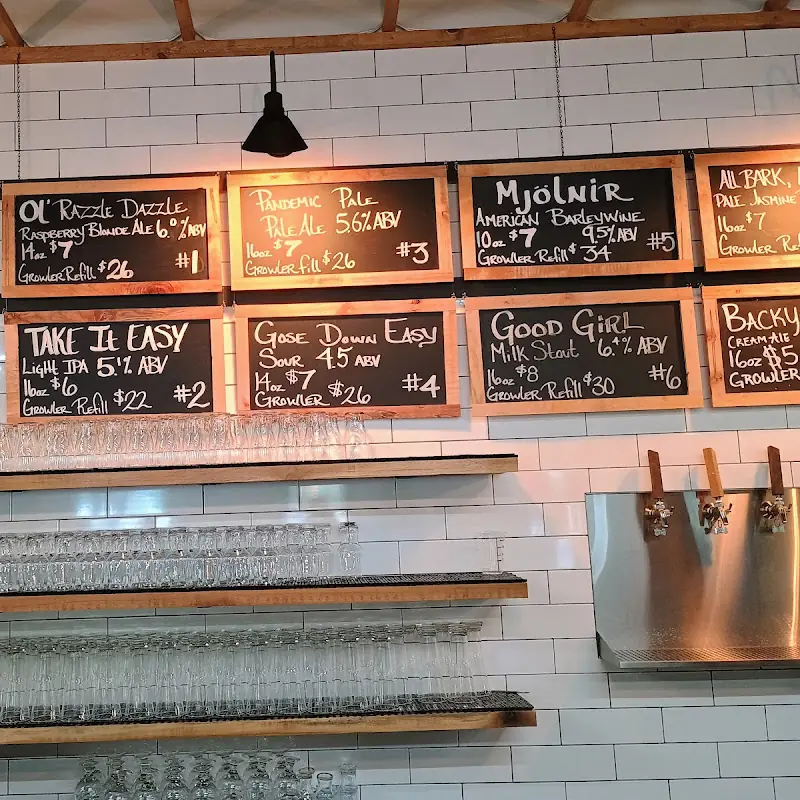 OL' RAZZLE DAZZLE
RASPBERRY BLONDE ALE 6.0% ABV
14oz $7
GROWLER REFILL $26 #1
PANDEMIC PALE
PALE ALE 5.6% ABV
16oz $7
GROWLER FILL $26 #3
MJÖLNIR
AMERICAN BARLEYWINE
10oz $7 9.5% ABV
GROWLER REFILL $34 #5
ALL BARK,
PALE JASMINE
16oz $7
GROWLER REF
TAKE IT EASY
LIGHT IPA 5.1% ABV
16oz $6
GROWLER REFILL $22 #2
GOSE DOWN EASY
SOUR 4.5 ABV
14oz $7
GROWLER $26 #4
GOOD GIRL
MILK STOUT 6.4% ABV
16oz $8
GROWLER REFILL $30 #6
BACKY
CREAM ALE
16oz $5
GROWLER